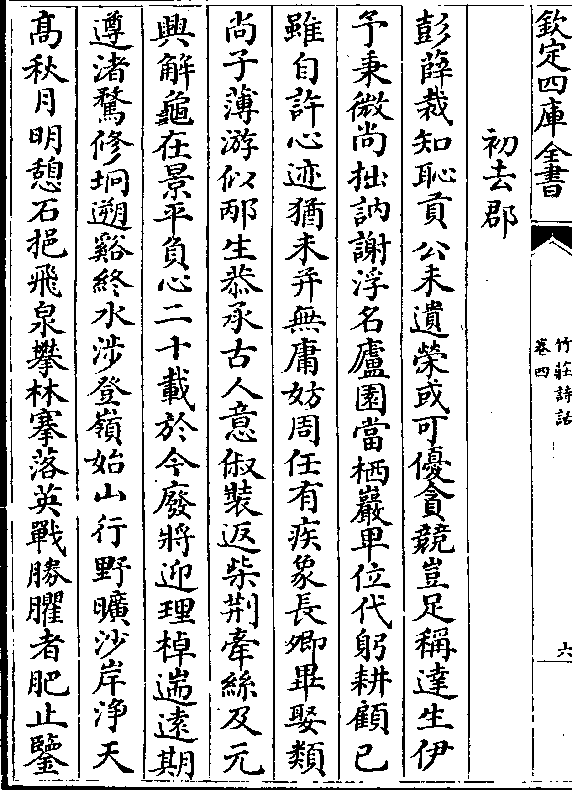 欽定四庫全書
竹莊詩話
卷四
六
初去郡
彭薛裁知恥貢公未遺榮或可優貪競豈足稱達生伊
予秉微尚拙訥謝浮名廬園當栖巖卑位代躬耕顧已
雖自許心迹猶未并無庸妨周任有疾象長卿畢娶類
尚子薄游似邴生恭承古人意促裝返柴荆牽絲及元
興解龜在景平負心二十載於今廢將迎理棹遄逺期
遵渚騖修坰遡谿終水涉登嶺始山行野曠沙岸淨天
髙秋月明憩石挹飛泉攀林搴落英戰勝臞者肥止鑒